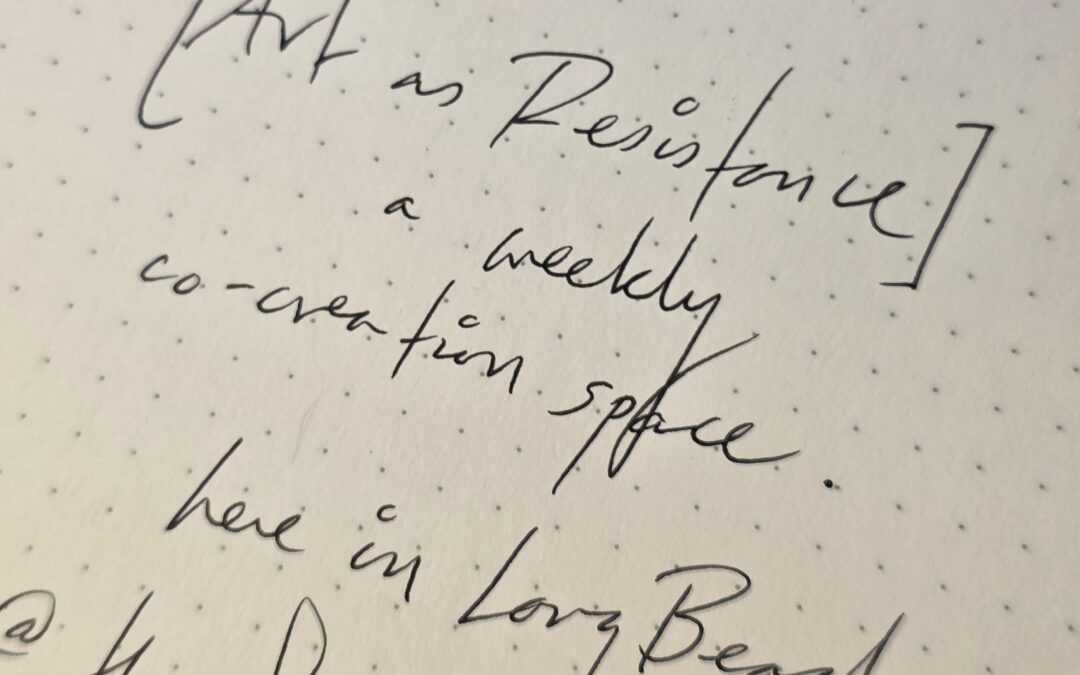 [Art as Resistance]
a weekly
co-creation space.
here in Long Beach
@ the